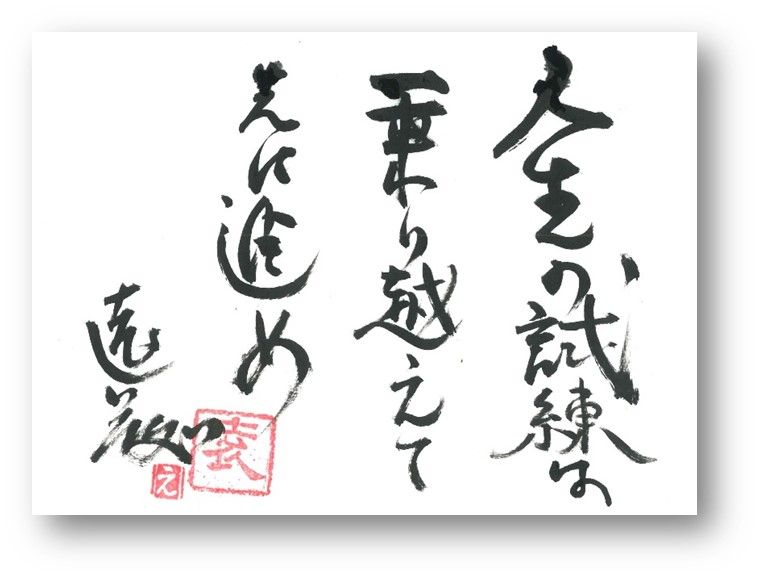 人生の試練は
乗り越えて
先に進め
え